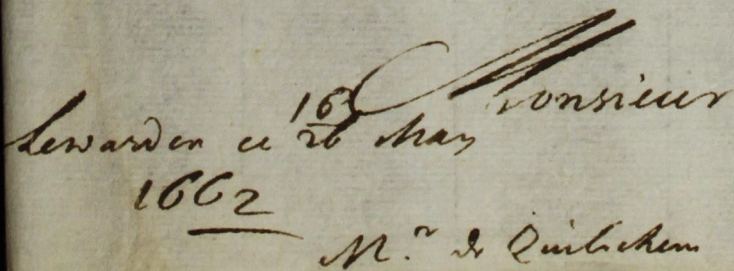 Monsieur
Lewarden ce 16/26 May
1662
Mr. de Zuilichem